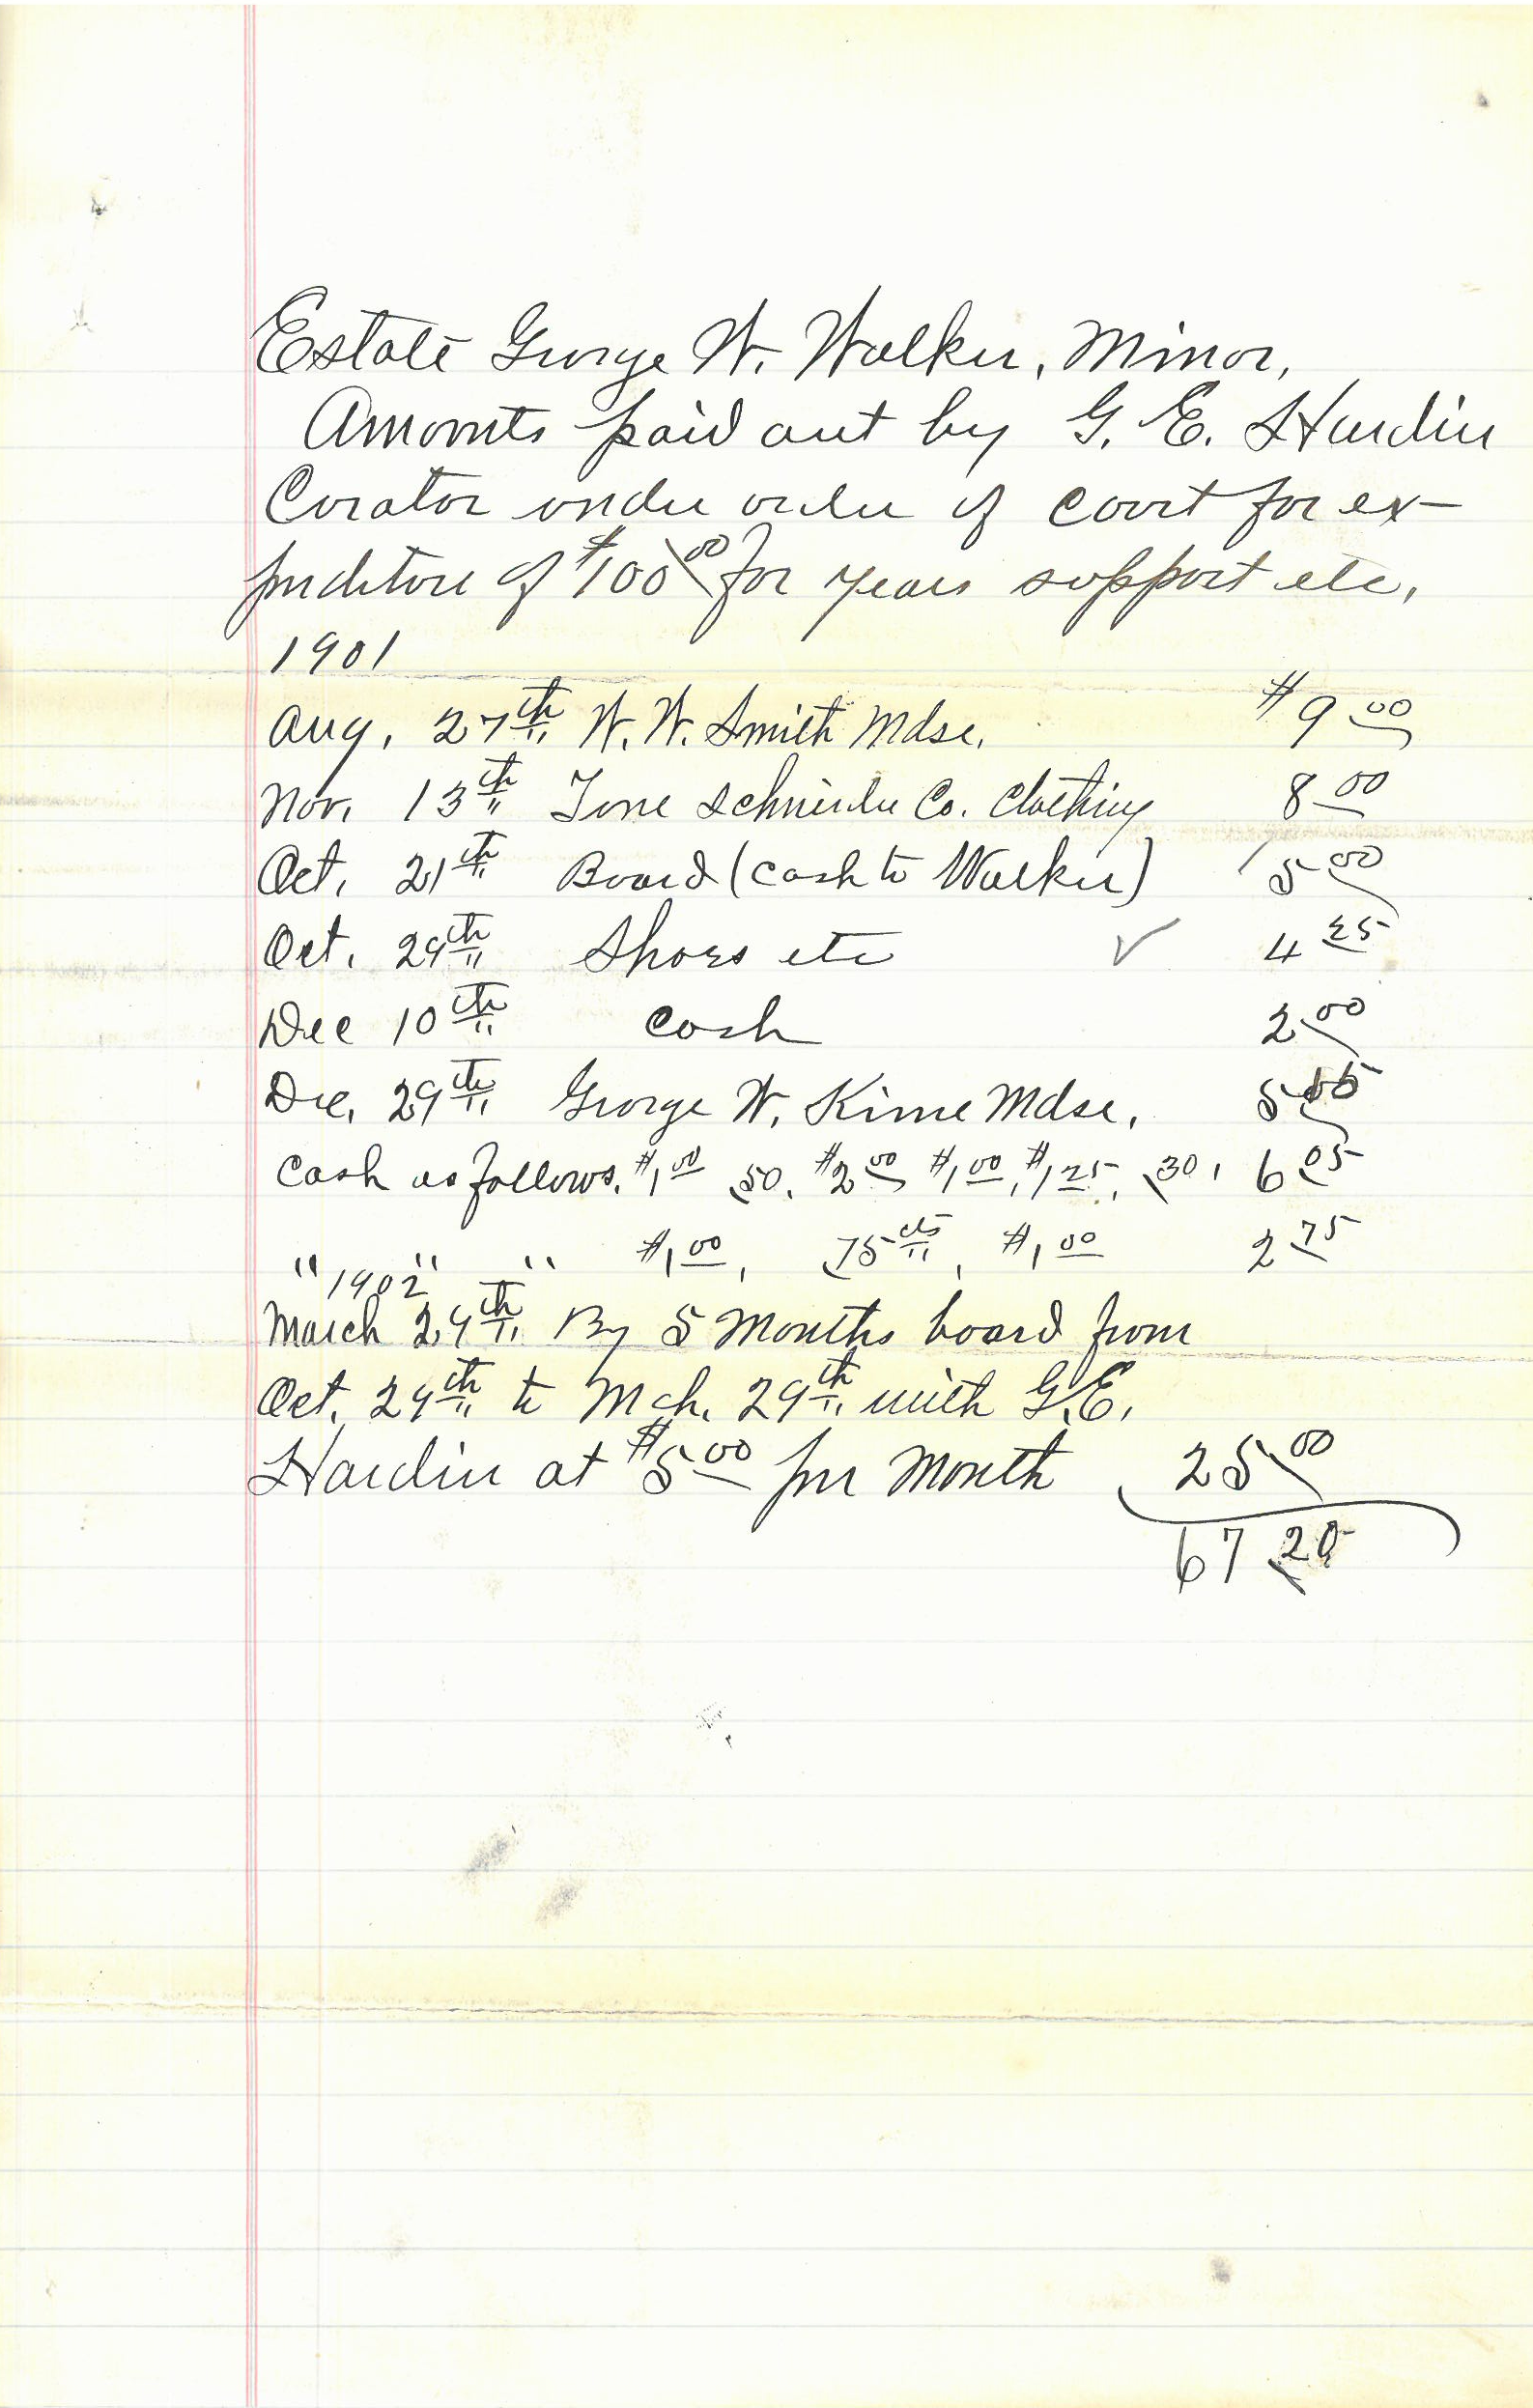 Estate George W. Walker, Minor,
Amounts paid out by G. E. Hardin
Curator under order of Court for ex-
penditure of $100 00 for years support etc,
1901
Aug, 27th W. W. Smith Mdse, $9 00
Nov, 13th Schneider Co. Clothing 8 00
Oct, 21th Board (cash to Walker) 5 00
Oct, 29th Shoes etc ✓ 4 25
Dec 10th Cash 2 00
Dec, 29th George W, Kime Mdse, 5
Cash as follows, $1 00 50, $2 00 $1 00, $1 25, 30, 6 05
" " " $1 00, 75 cts, $1 00 2 75
1902
March 29th By 5 Months board from
Oct, 29th to Mch, 29th with G.E,
Hardin at $5 00 per Month 25 00
67 20